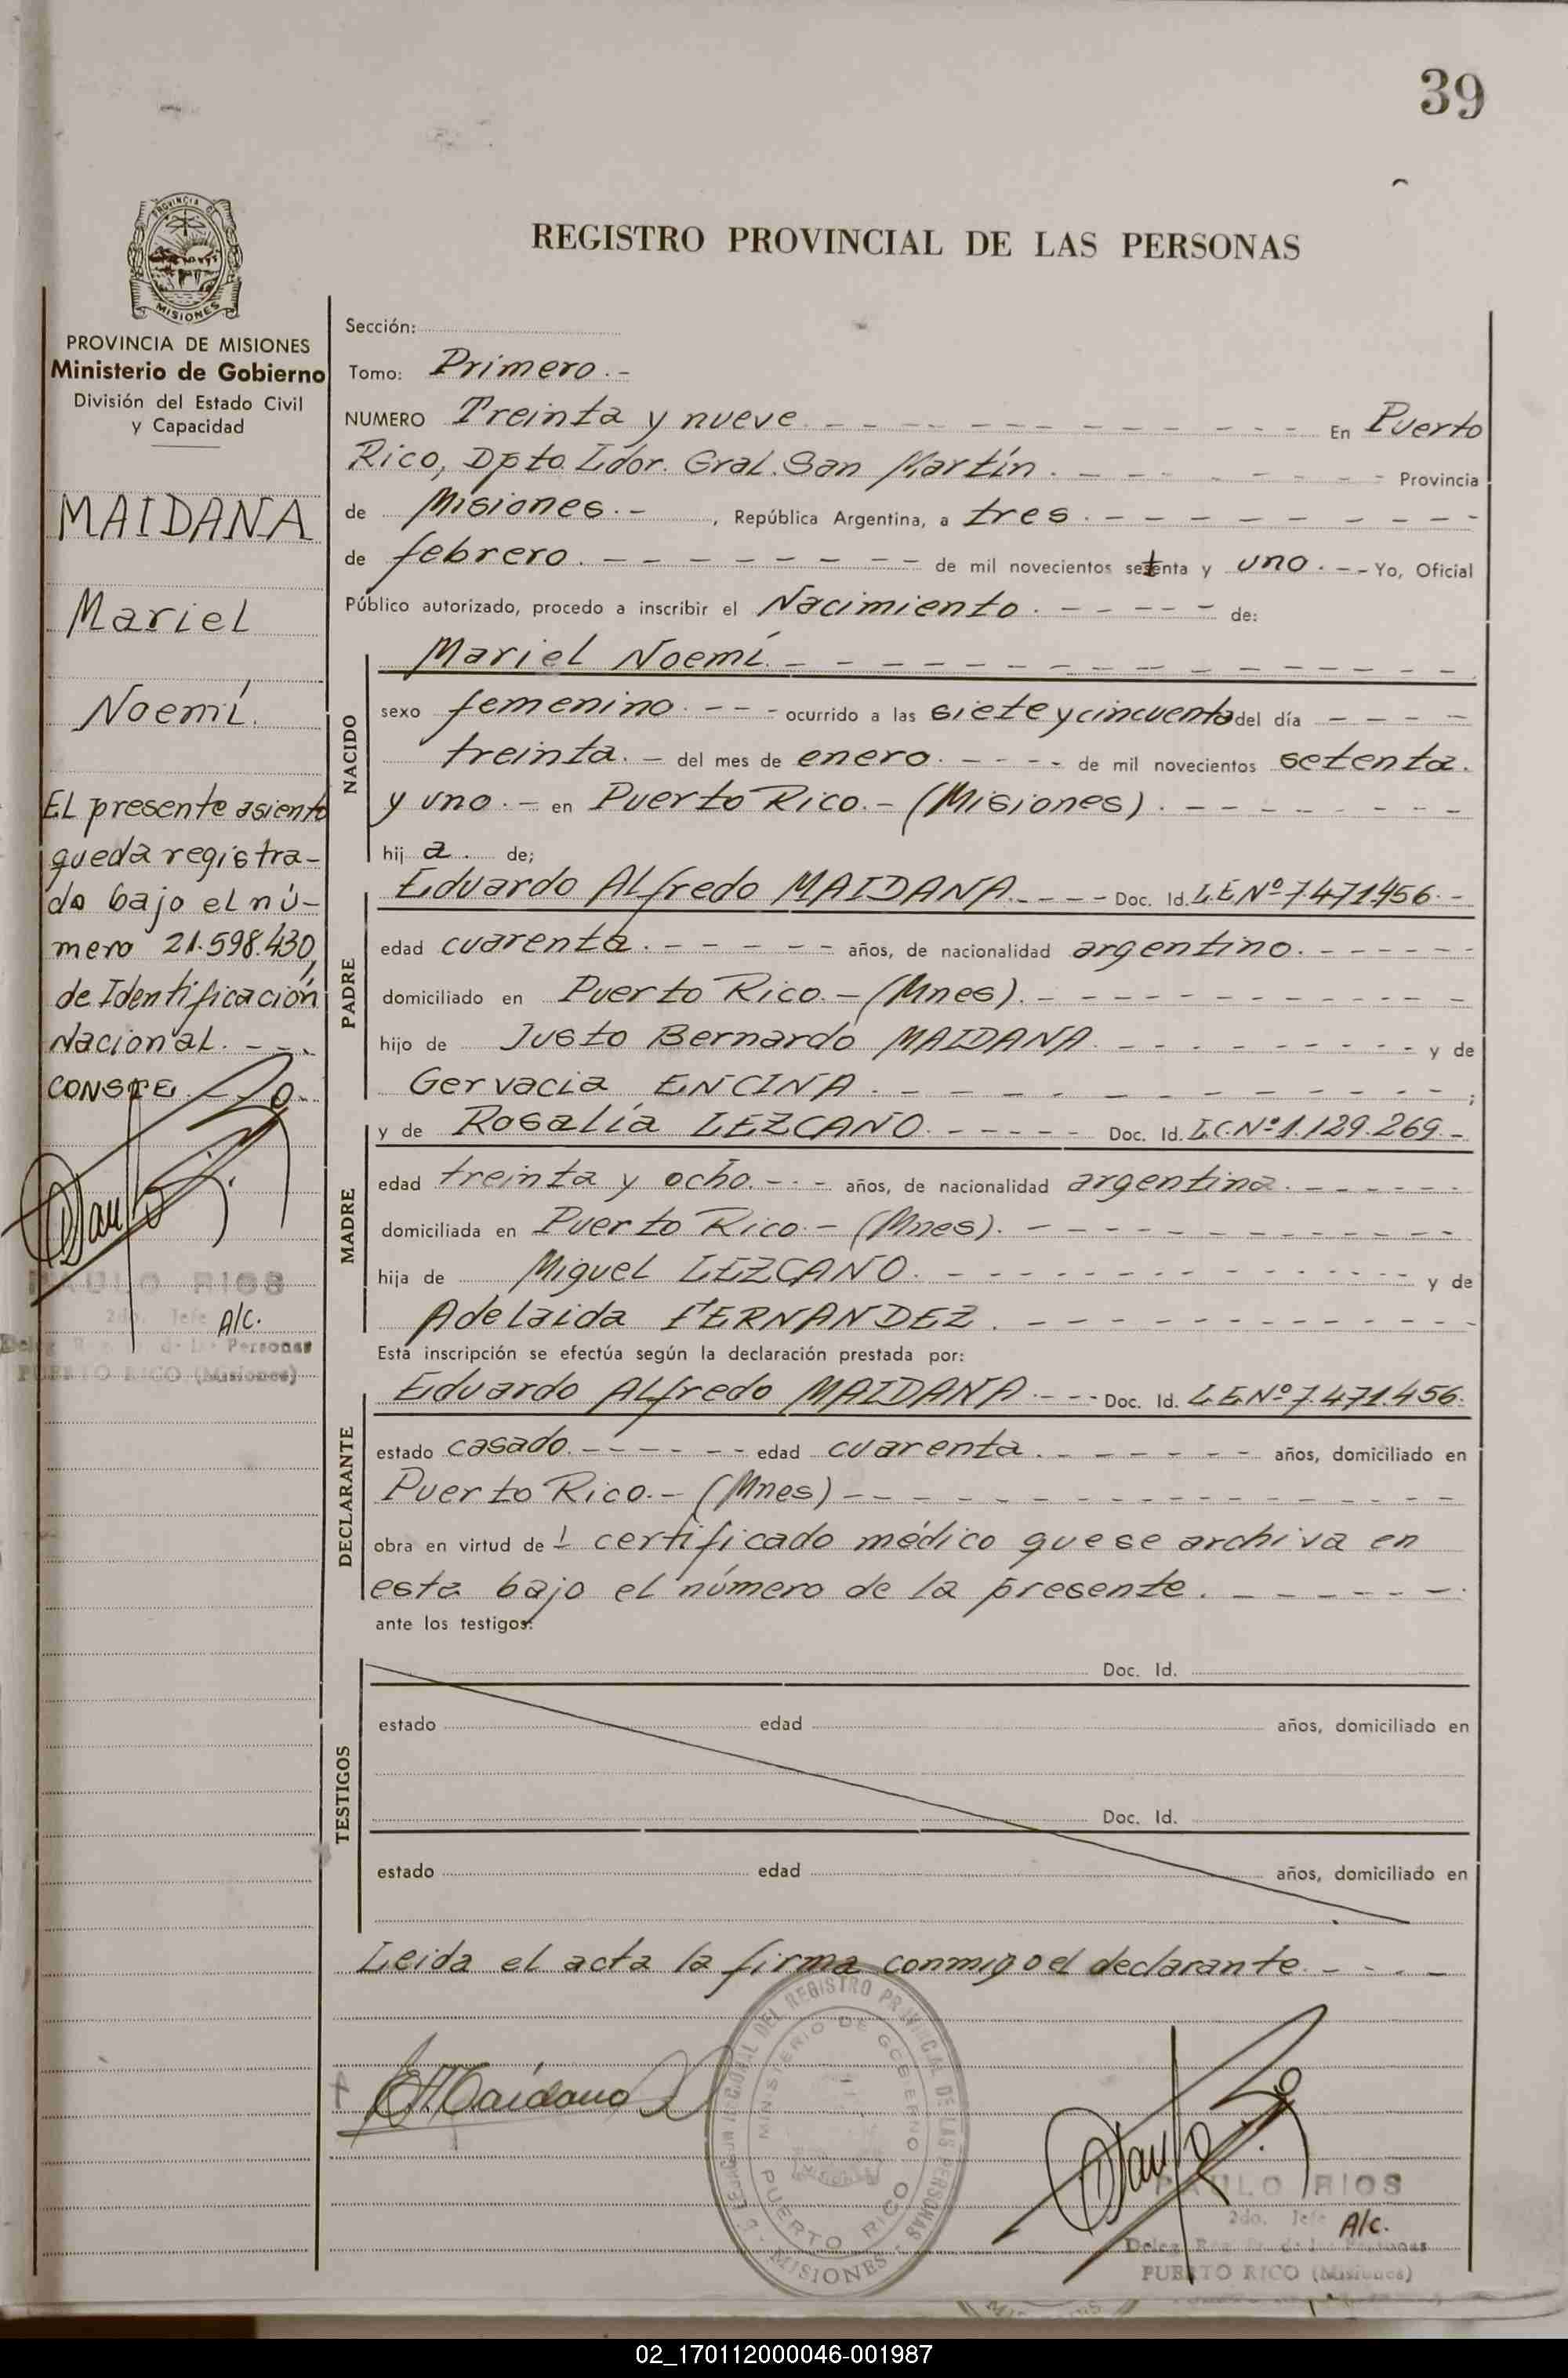 39
PROVINCIA DE
MISIONES
REGISTRO PROVINCIAL DE LAS PERSONAS
PROVINCIA DE MISIONES
Ministerio de Gobierno
División del Estado Civil
y Capacidad
MAIDANA
Mariel
Noemí.
El presente asiento
queda registra-
do bajo el nú-
mero 21.598.430,
de Identificación
Nacional. - - .
CONSTE.
PAULO RIOS
2do. Jefe A/C.
Deleg. de las Personas
PUERTO RICO (Misiones)
Sección:
Tomo: Primero.-
NUMERO Treinta y nueve. En Puerto
Rico, Dpto Ldor. Gral. San Martín. Provincia
de Misiones.- , República Argentina, a tres.
de febrero. de mil novecientos setenta y uno. Yo, Oficial
Público autorizado, procedo a inscribir el Nacimiento. de:
NACIDO
Mariel Noemí.
sexo femenino. ocurrido a las siete y cincuenta del día
treinta. - del mes de enero. de mil novecientos setenta.
y uno.- en Puerto Rico.- (Misiones).
hij a. de;
PADRE
Eduardo Alfredo MAIDANA. Doc. Id. L.E Nº 7.471.456.-
edad cuarenta. años, de nacionalidad argentino.
domiciliado en Puerto Rico.- (Mnes).
hijo de Justo Bernardo MAIDANA. y de
Gervacia ENCINA. ;
MADRE
y de Rosalía LEZCANO. Doc. Id. L.C. Nº 1.129.269.-
edad treinta y ocho. años, de nacionalidad argentina.
domiciliada en Puerto Rico.- (Mnes).
hija de Miguel LEZCANO. y de
Adelaida FERNANDEZ.
Esta inscripción se efectúa según la declaración prestada por:
DECLARANTE
Eduardo Alfredo MAIDANA. Doc. Id. L.E Nº 7.471.456.
estado casado. edad cuarenta. años, domiciliado en
Puerto Rico.- (Mnes)
obra en virtud de 1 certificado médico que se archiva en
esta bajo el número de la presente.
ante los testigos:
TESTIGOS
Doc. Id.
estado edad años, domiciliado en
Doc. Id.
estado edad años, domiciliado en
Leida el acta la firma conmigo el declarante.
EAMaidana
DEL REGISTRO PROVINCIAL DE LAS PERSONAS
MINISTERIO DE GOBIERNO
PUERTO RICO
- MISIONES -
PAULO RIOS
2do. Jefe A/C.
Deleg. de las Personas
PUERTO RICO (Misiones)
02_170112000046-001987